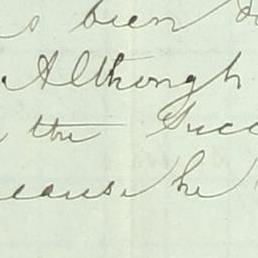 s been d
Although
the Succ
ecause he